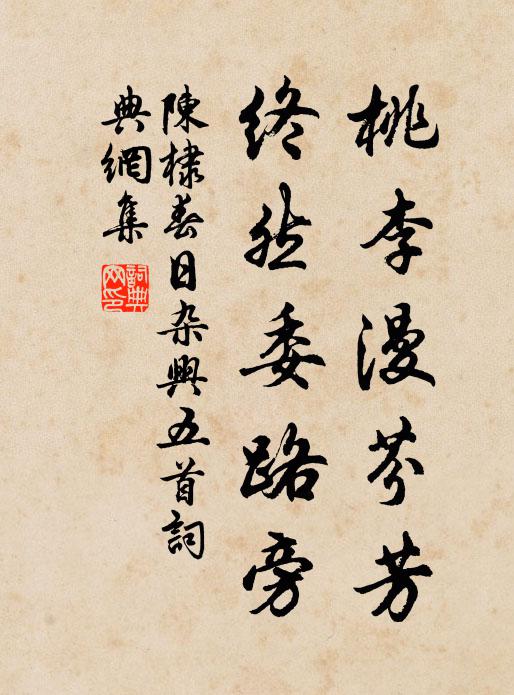 桃李漫芬芳
終然委路旁
陳棣春日杂興五首詞
典網集
詞典網印